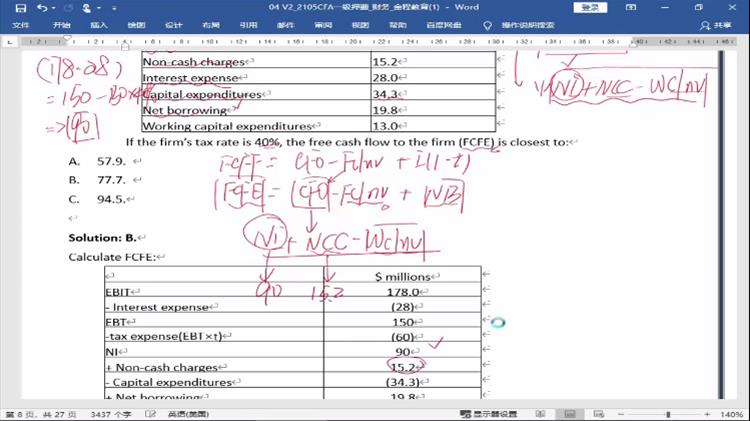 04 V2_2105CFA一级押题_财务_金程教育(1) - Word
登录
文件 开始 插入 绘图 设计 布局 引用 邮件 审阅 视图 帮助 百度网盘 操作说明搜索
共享
Non-cash charges 15.2
Interest expense 28.0
Capital expenditures 34.3
Net borrowing 19.8
Working capital expenditures 13.0
(178-28)
=150-150×40%
=>90
NI+NCC-WCInv
If the firm's tax rate is 40%, the free cash flow to the firm (FCFE) is closest to:
A. 57.9.
B. 77.7.
C. 94.5.
FCFF = CFO - FCInv + I(1-t)
FCFE = CFO - FCInv + NB
NI + NCC - WCInv
90 15.2
Solution: B.
Calculate FCFE:
$ millions
EBIT 178.0
- Interest expense (28)
EBT 150
-tax expense(EBT×t) (60)
NI 90
+ Non-cash charges 15.2
- Capital expenditures (34.3)
+ Net borrowing 19.8
第 8 页，共 27 页 3437 个字 英语(美国) 显示器设置 140%